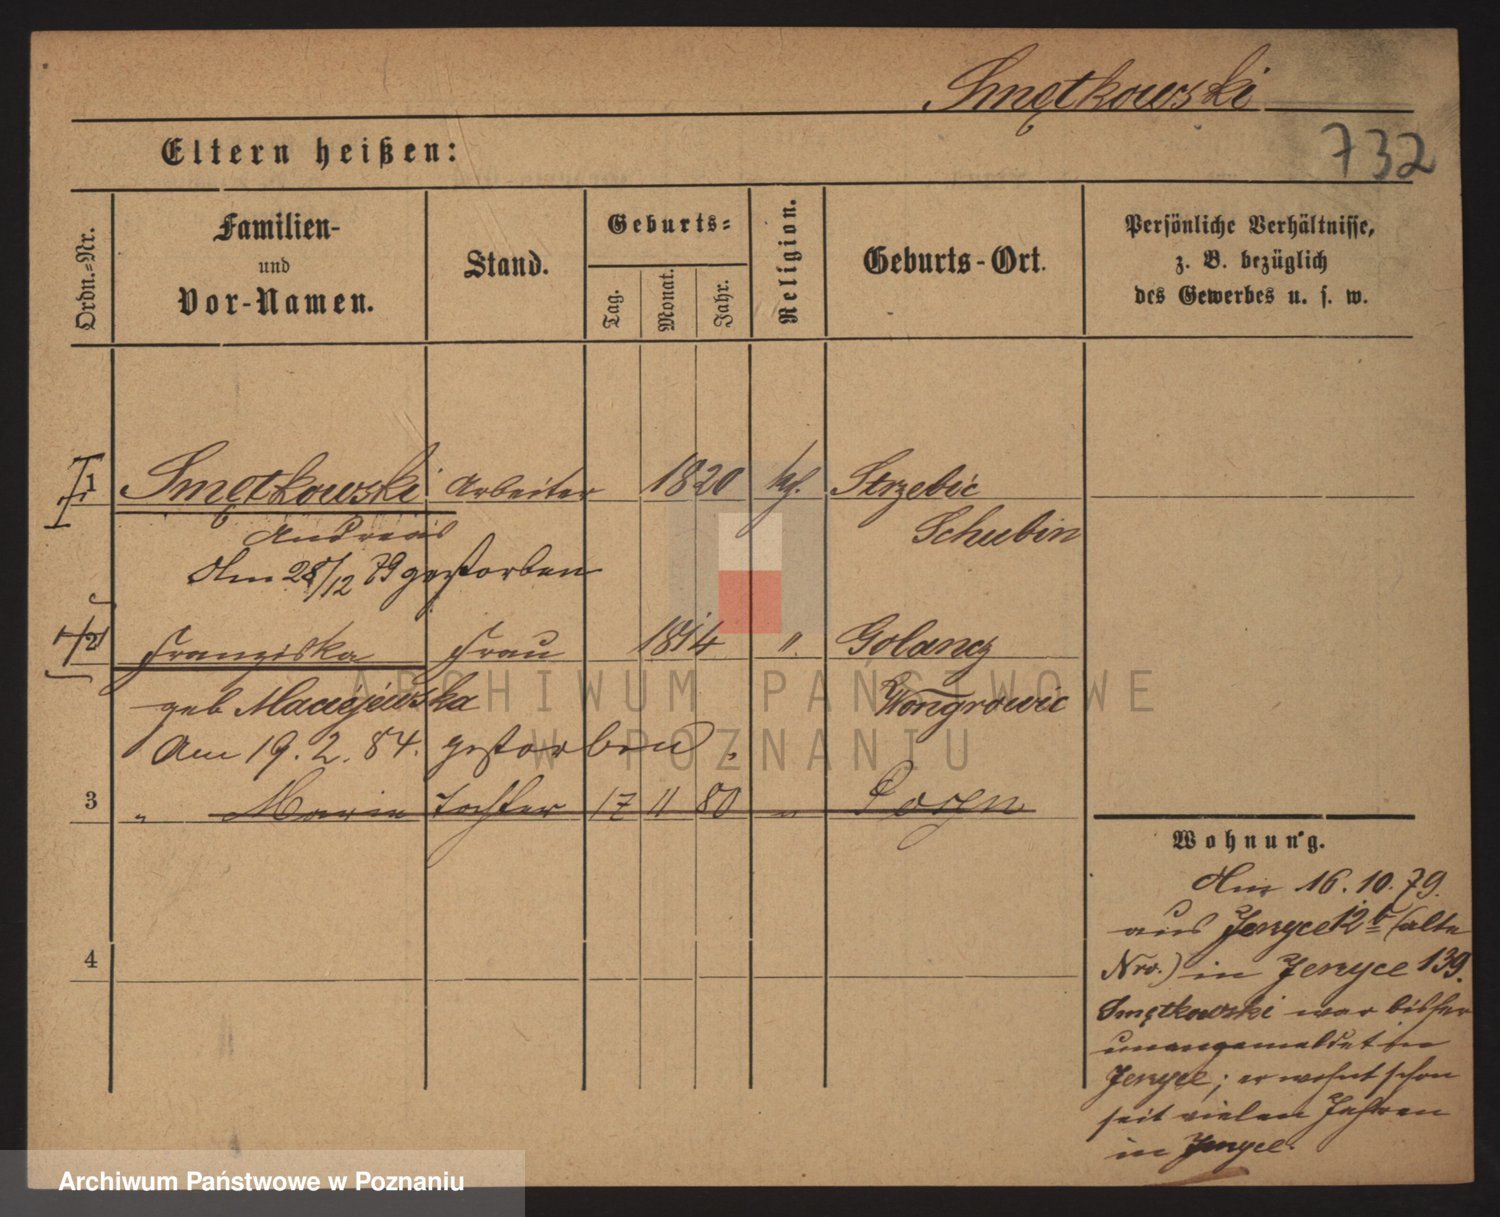 Smętkowski
732
Eltern heißen:
Ordn.-Nr.
Familien-
und
Vor-Namen.
Stand.
Geburts-
Tag.
Monat.
Jahr.
Religion.
Geburts-Ort.
Persönliche Verhältnisse,
z. B. bezüglich
des Gewerbes u. s. w.
1 Smętkowski Arbeiter 1820 kath. Strzebić
Andreas Schubin
Am 28/12 79 gestorben
2 Franziska Frau 1814 " Golancz
geb Maciejewska Wongrowic
Am 19. 2. 84. gestorben.
3 " Marie Tochter 17 11 80 " Posen
4
Wohnung.
Am 16. 10. 79.
aus Jerzyce 12 b (alte
Nro.) in Jerzyce 139.
Smętkowski war bisher
unangemeldet in
Jerzyce; er wohnt schon
seit vielen Jahren
in Jerzyce.
ARCHIWUM PAŃSTWOWE
W POZNANIU
Archiwum Państwowe w Poznaniu